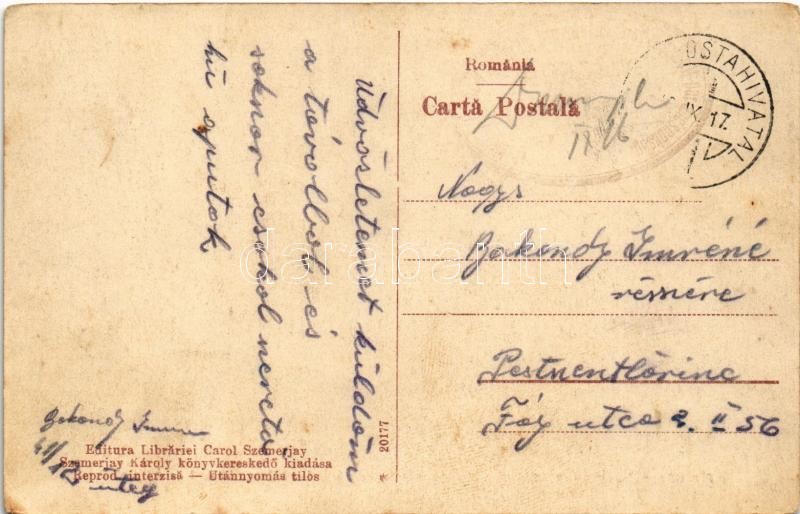 Üdvözletemet küldöm
a távolból és
sokszor csókol szerető
hű apátok
Bakondy Imre
41/12 üteg
Editura Librăriei Carol Szemerjay
Szemerjay Károly könyvkereskedő kiadása
Reprod. interzisă — Utánnyomás tilos
20177
România
Cartă Postală
IX 16
POSTAHIVATAL
IX. 17.
Nagys
Bakondy Imréné
részére
Pestszentlőrinc
Fáy utca 2. II 56
darabanth